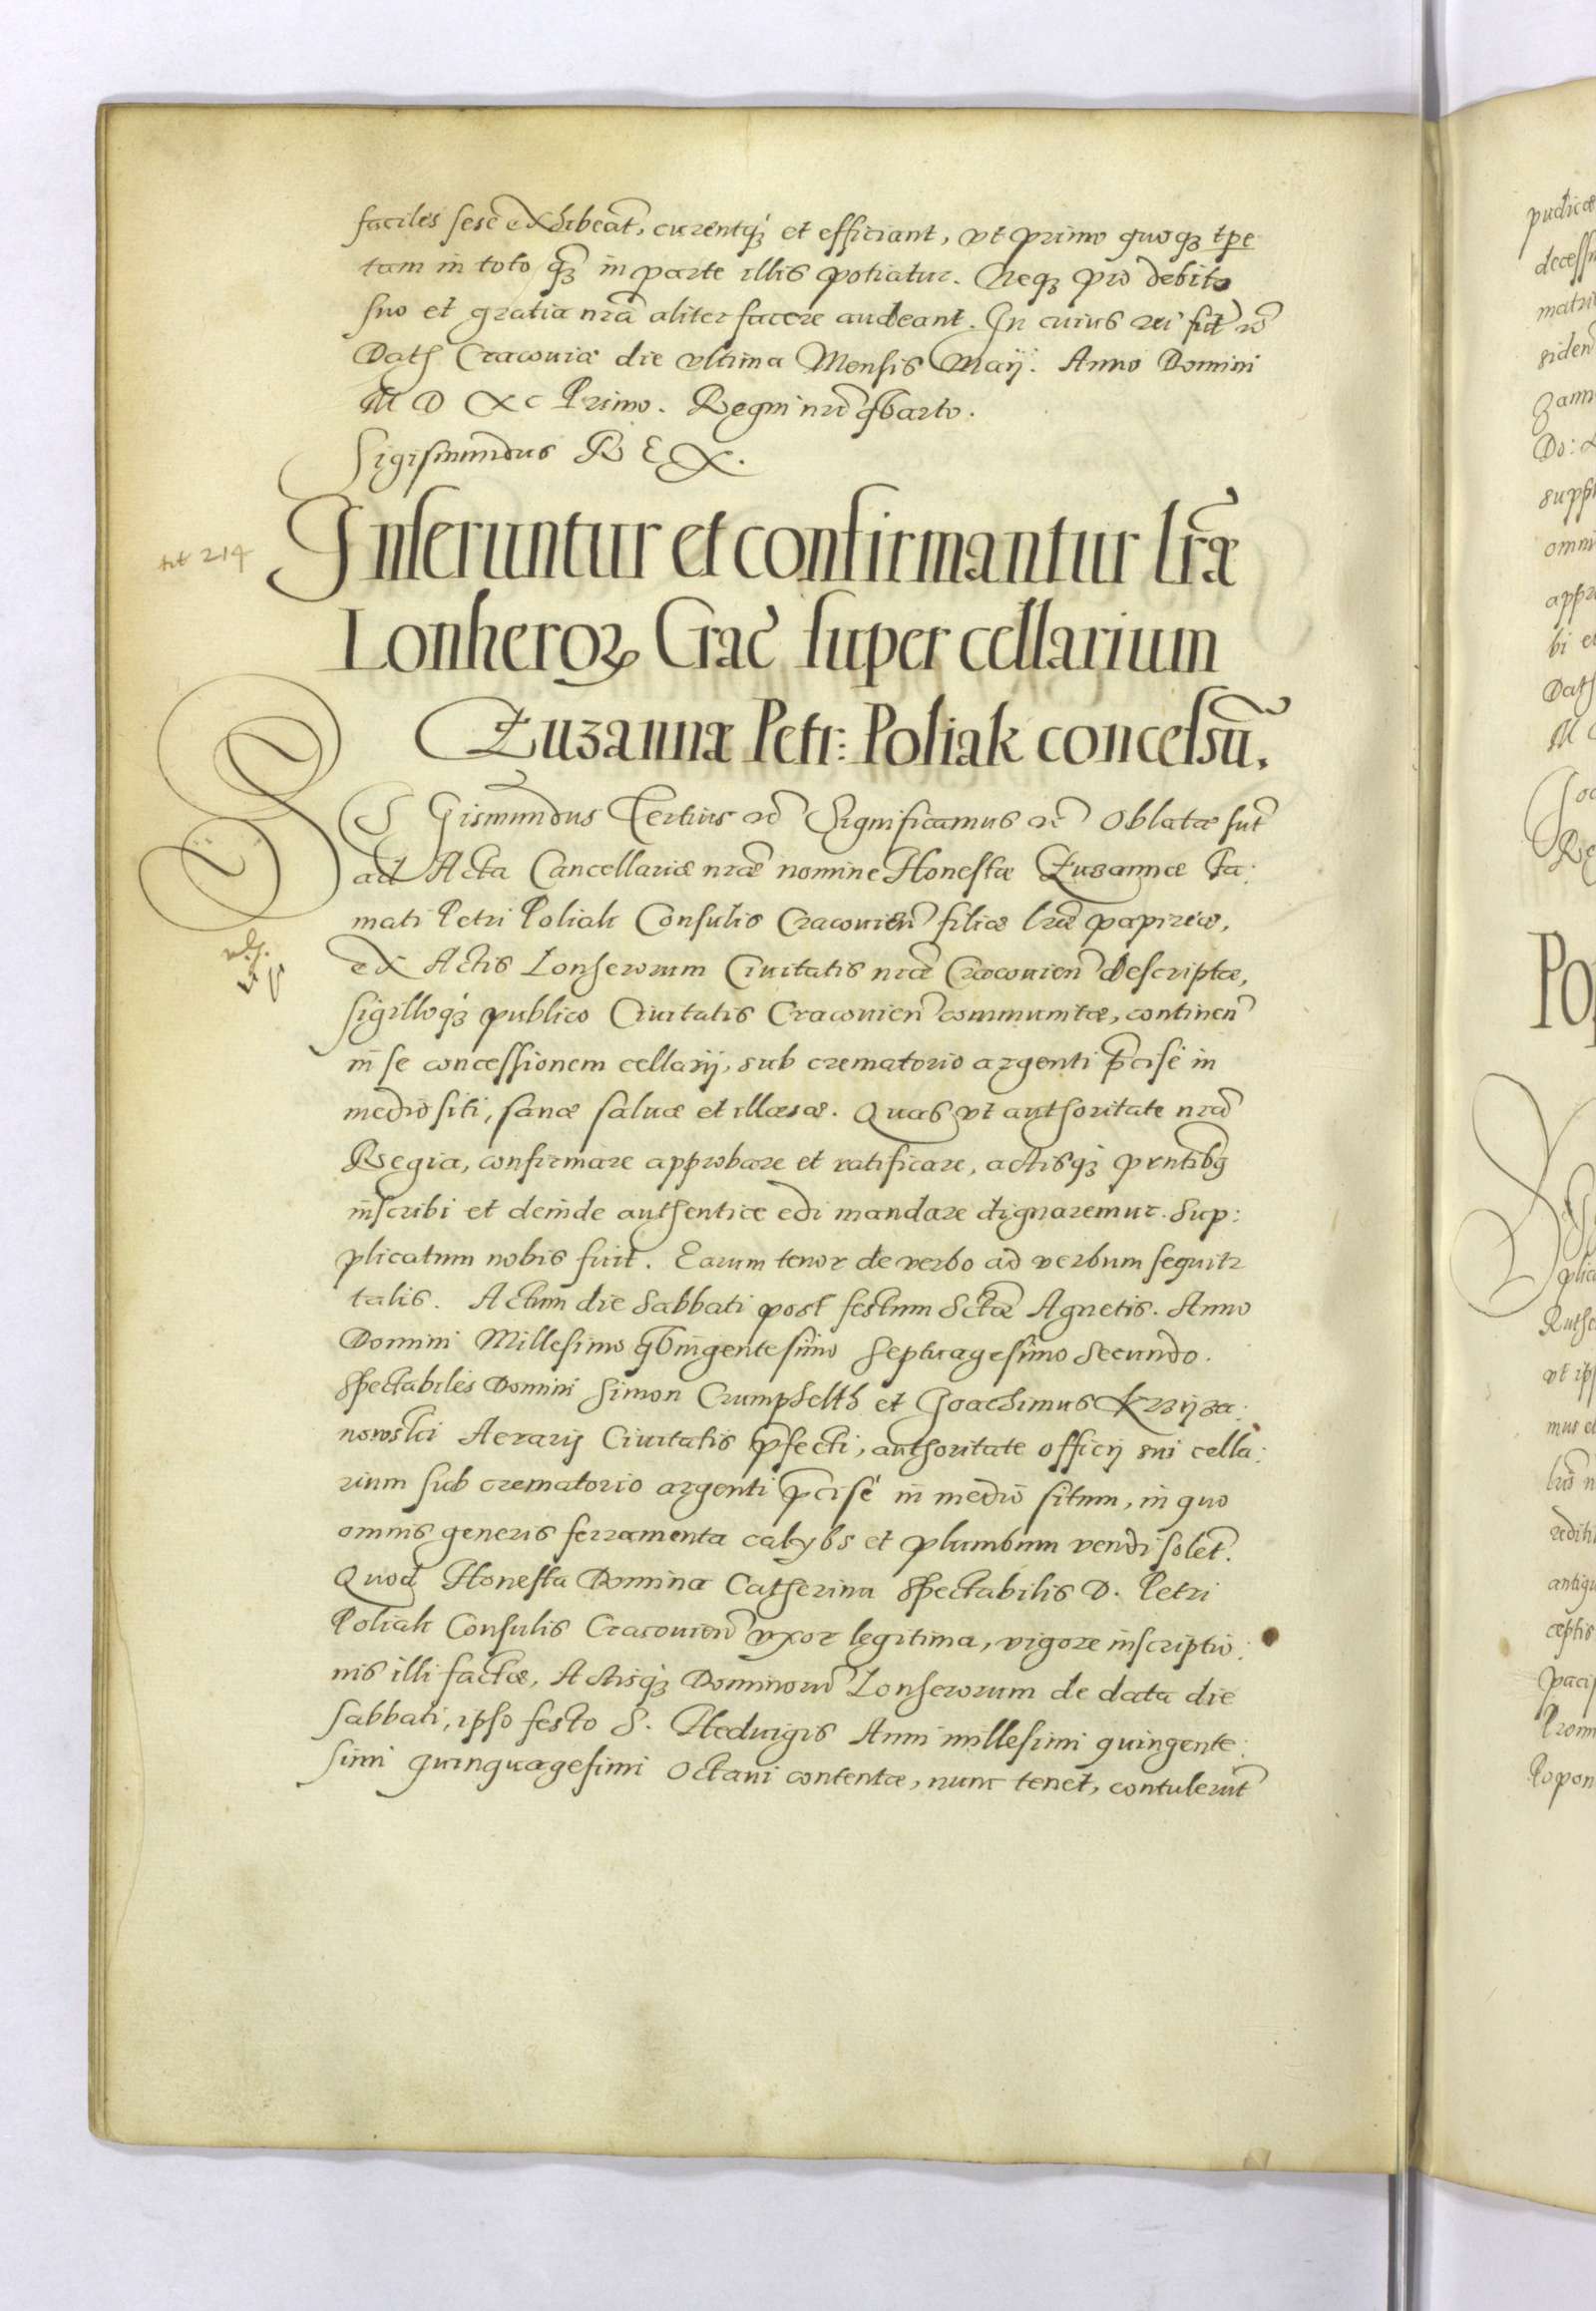 faciles sese exhibeāt, curentq́ꝫ et efficiant, vt primo quoqꝫ tp̄e
tam in toto q̄ꝫ in parte illis potiatur. Neqꝫ pro debito
suo et gratia nrā aliter facere audeant. In cuius rei fid̄ rc̄
Datꝭ Cracouiæ die vltima Mensis Maij. Anno Domini
M D XC Primo. Regni nrī qūarto.
Sigismundus REX.
tit 214
Inseruntur et confirmantur lr̄æ
Lonheroꝝ Crac̄ super cellarium
Zuzannæ Petr: Poliak concessū.
SIgismundus Tertius rc̄ Significamus rc̄ Oblatæ sūt
ad Acta Cancellariæ nrāe nomine Honestæ Zuzannæ Fa:
mati Petri Poliak Consulis Cracouien̄ filiæ lrāe papireæ,
ex Actis Lonherorum Ciuitatis nrāe Cracouien̄ descriptæ,
sigilloq́ꝫ publico Ciuitatis Cracouien̄ communitæ, continen̄
in se concessionem cellarij, sub crematorio argenti p̄cisé in
medio siti, sanæ saluæ et illæsæ. Quas vt authoritate nrā
Regia, confirmare approbare et ratificare, actisq́ꝫ prntībꝫ
inscribi et deinde authentice edi mandare dignaremur. Sup:
plicatum nobis fuit. Earum tenor de verbo ad verbum sequitr
talis. Actum die Sabbati post festum Sctāe Agnetis. Anno
Domini Millesimo qūingentesimo Septuagesimo Secundo.
Spectabiles Domini Simon Crumpfelth et Joachimus Krziza:
nowski Aerarij Ciuitatis p̄fecti, authoritate officij sui cella:
rium sub crematorio argenti p̄cisé in medio situm, in quo
omnis generis ferramenta calybs et plumbum vendi solet.
Quod Honesta Domina Catherina Spectabilis D. Petri
Poliak Consulis Cracouien̄ vxor legitima, vigore inscriptio:
nis illi factæ, Actisq́ꝫ Dominorū Lonherorum de data die
Sabbati, ipso festo S. Heduigis Anni millesimi quingente:
simi quinquagesimi Octaui contentæ, nunc tenet, contulerūt